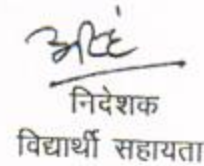 निदेशक
विद्यार्थी सहायता